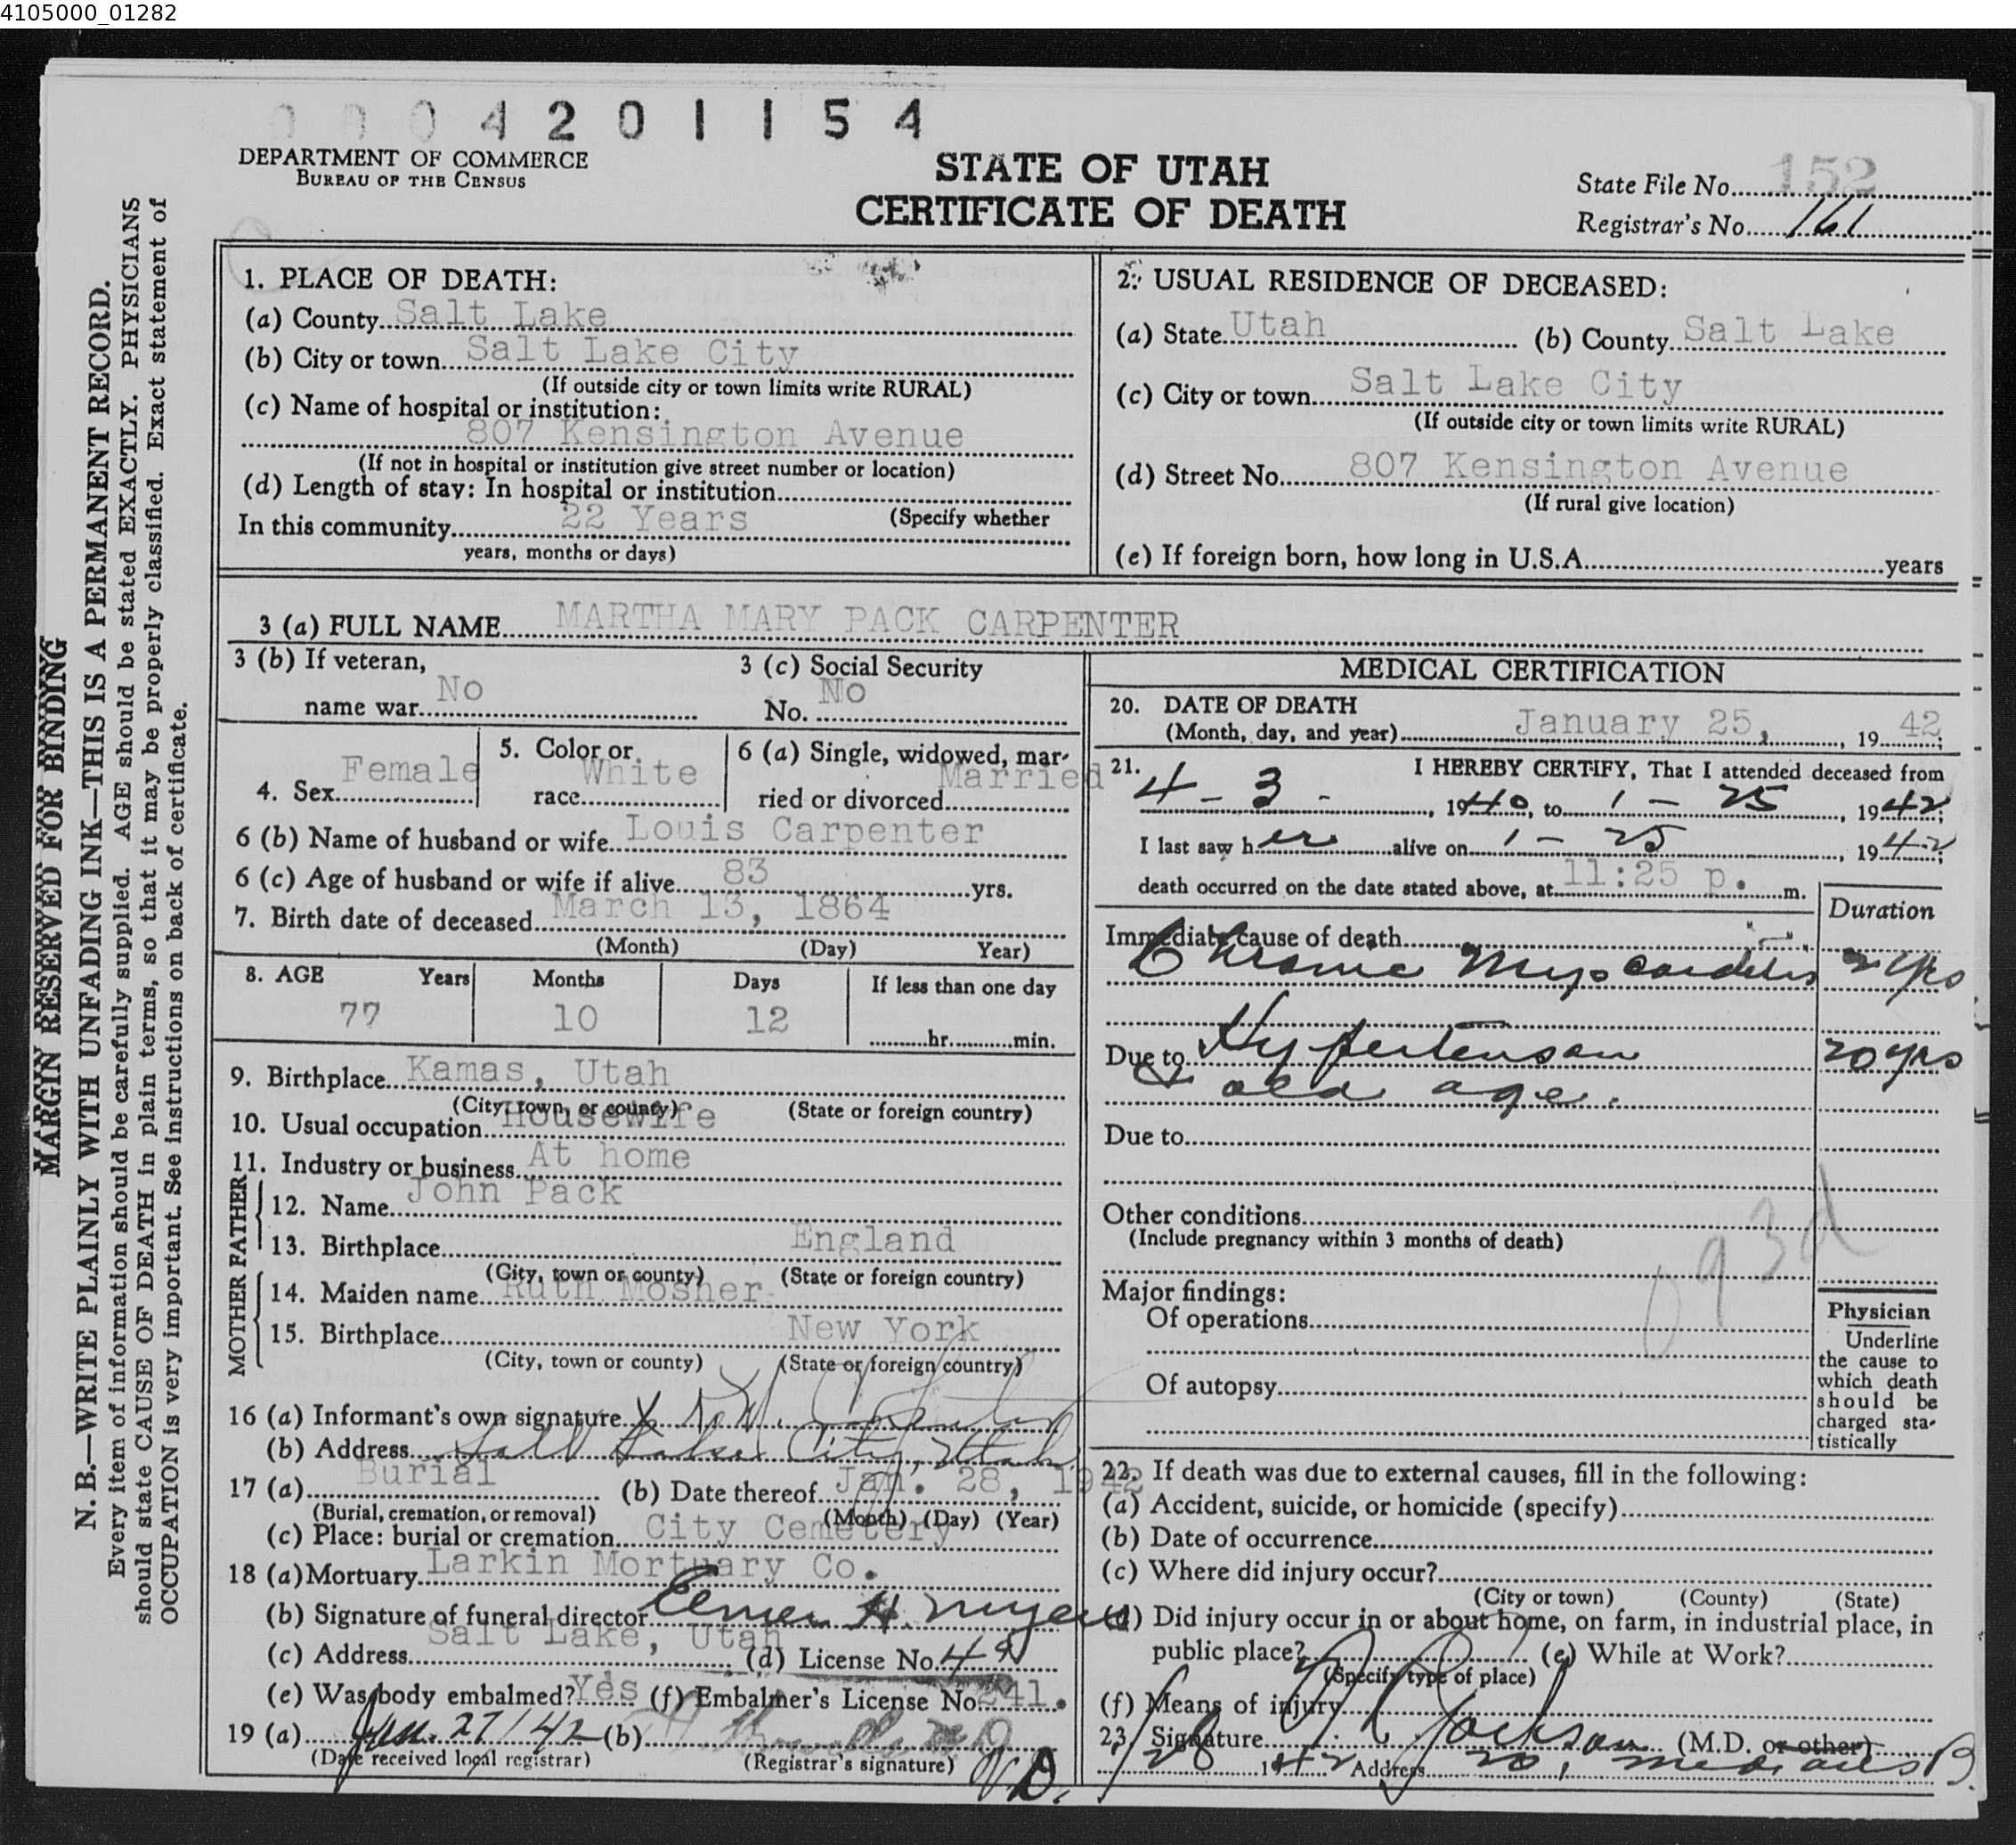 4105000_01282
0004201154
DEPARTMENT OF COMMERCE
BUREAU OF THE CENSUS
STATE OF UTAH
CERTIFICATE OF DEATH
State File No. 152
Registrar's No. 161
MARGIN RESERVED FOR BINDING
N. B.—WRITE PLAINLY WITH UNFADING INK—THIS IS A PERMANENT RECORD.
Every item of information should be carefully supplied. AGE should be stated EXACTLY. PHYSICIANS
should state CAUSE OF DEATH in plain terms, so that it may be properly classified. Exact statement of
OCCUPATION is very important. See instructions on back of certificate.
1. PLACE OF DEATH:
(a) County Salt Lake
(b) City or town Salt Lake City
(If outside city or town limits write RURAL)
(c) Name of hospital or institution:
807 Kensington Avenue
(If not in hospital or institution give street number or location)
(d) Length of stay: In hospital or institution
In this community 22 Years (Specify whether
years, months or days)
2. USUAL RESIDENCE OF DECEASED:
(a) State Utah (b) County Salt Lake
(c) City or town Salt Lake City
(If outside city or town limits write RURAL)
(d) Street No. 807 Kensington Avenue
(If rural give location)
(e) If foreign born, how long in U.S.A. years
3 (a) FULL NAME MARTHA MARY PACK CARPENTER
3 (b) If veteran,
name war No
3 (c) Social Security
No. No
4. Sex Female
5. Color or
race White
6 (a) Single, widowed, mar-
ried or divorced Married
6 (b) Name of husband or wife Louis Carpenter
6 (c) Age of husband or wife if alive 83 yrs.
7. Birth date of deceased March 13, 1864
(Month) (Day) Year)
8. AGE Years Months Days If less than one day
77 10 12 hr. min.
9. Birthplace Kamas, Utah
(City, town, or county) (State or foreign country)
10. Usual occupation Housewife
11. Industry or business At home
FATHER
12. Name John Pack
13. Birthplace England
(City, town or county) (State or foreign country)
MOTHER
14. Maiden name Ruth Mosher
15. Birthplace New York
(City, town or county) (State or foreign country)
16 (a) Informant's own signature X Carpenter
(b) Address Salt Lake City, Utah
17 (a) Burial (b) Date thereof Jan. 28, 1942
(Burial, cremation, or removal) (Month) (Day) (Year)
(c) Place: burial or cremation City Cemetery
18 (a) Mortuary Larkin Mortuary Co.
(b) Signature of funeral director
(c) Address Salt Lake, Utah (d) License No. 49
(e) Was body embalmed? Yes (f) Embalmer's License No. 241.
19 (a) Jan. 27/42 (b)
(Date received local registrar) (Registrar's signature)
MEDICAL CERTIFICATION
20. DATE OF DEATH
(Month, day, and year) January 25, , 19 42;
21. I HEREBY CERTIFY, That I attended deceased from
4 - 3 - , 1940, to 1 - 25 , 1942;
I last saw her alive on 1 - 25 , 1942;
death occurred on the date stated above, at 11:25 p. m.
Duration
Immediate cause of death
Chronic Myocarditis 2 yrs
Due to Hypertension 20 yrs
& old age.
Due to
Other conditions
(Include pregnancy within 3 months of death)
093d
Major findings:
Of operations
Of autopsy
Physician
Underline
the cause to
which death
should be
charged sta-
tistically
22. If death was due to external causes, fill in the following:
(a) Accident, suicide, or homicide (specify)
(b) Date of occurrence
(c) Where did injury occur?
(City or town) (County) (State)
(d) Did injury occur in or about home, on farm, in industrial place, in
public place? (e) While at Work?
(Specify type of place)
(f) Means of injury
23. Signature Jackson (M.D. or other)
1/28 1942 Address